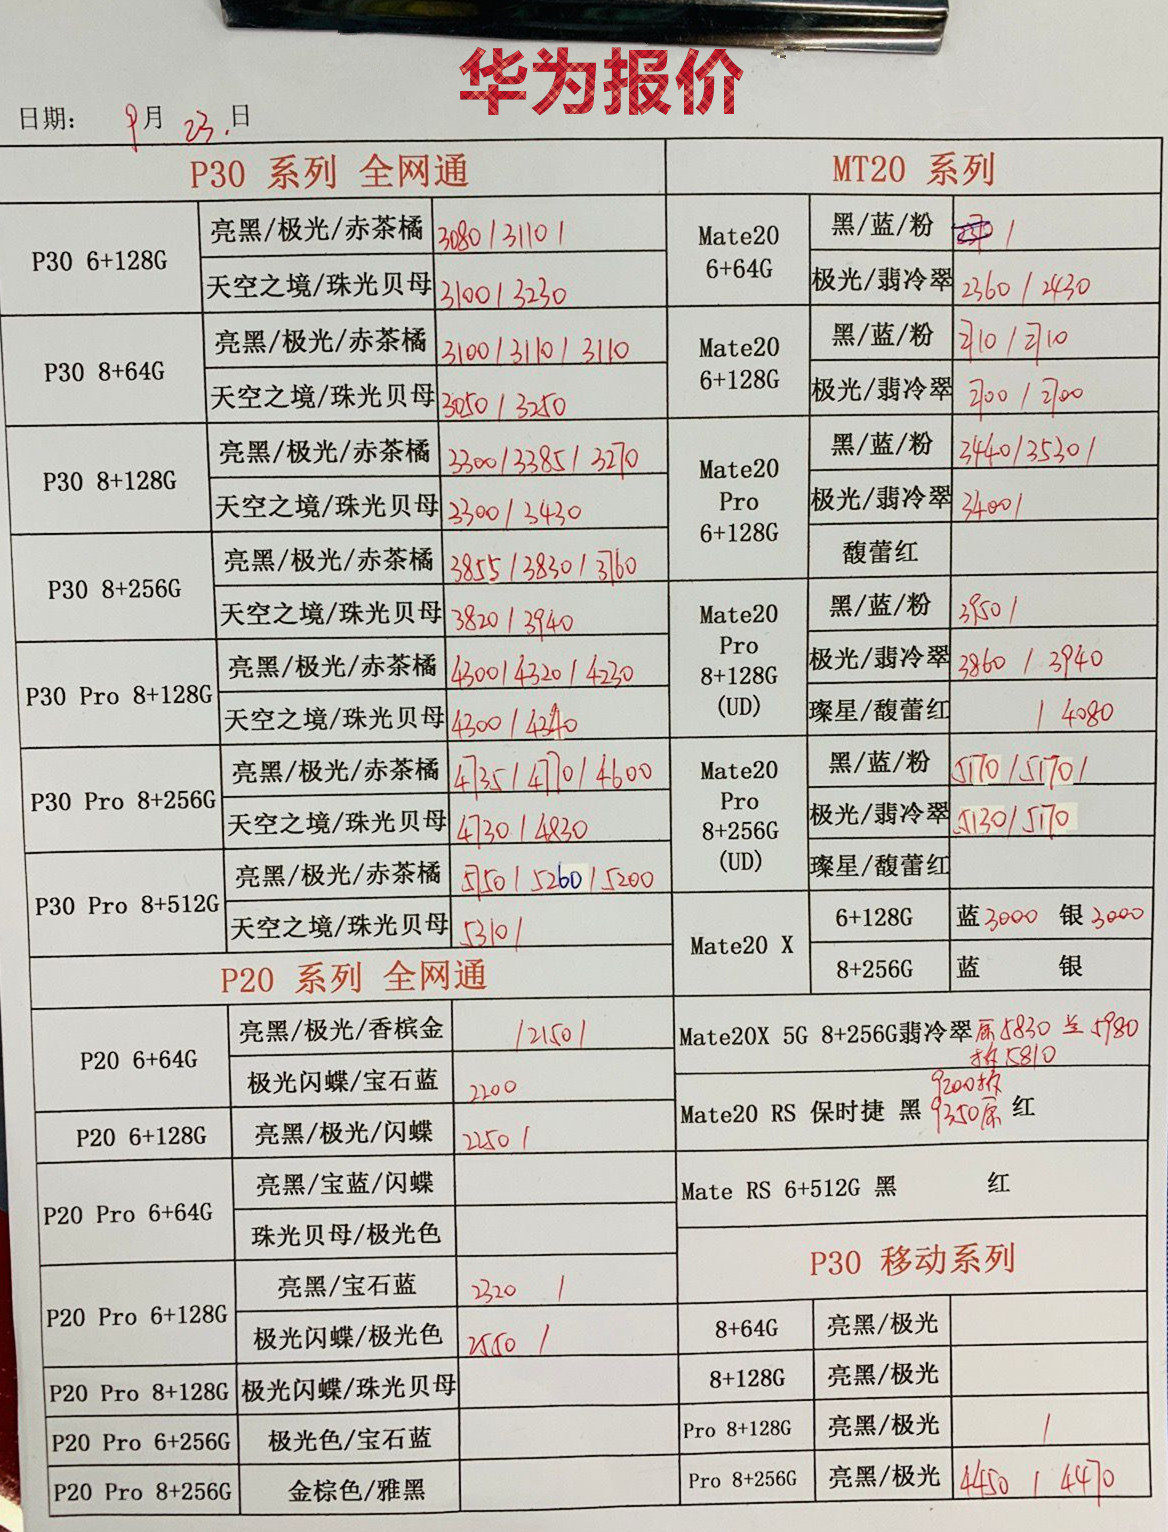 华为报价
日期: 9月 23.日
P30 系列 全网通
P30 6+128G
亮黑/极光/赤茶橘 3080/3110/
天空之境/珠光贝母 3100/3230
P30 8+64G
亮黑/极光/赤茶橘 3100/3110/3110
天空之境/珠光贝母 3050/3250
P30 8+128G
亮黑/极光/赤茶橘 3300/3385/3270
天空之境/珠光贝母 3300/3430
P30 8+256G
亮黑/极光/赤茶橘 3855/3830/3760
天空之境/珠光贝母 3820/3940
P30 Pro 8+128G
亮黑/极光/赤茶橘 4300/4320/4230
天空之境/珠光贝母 4300/
P30 Pro 8+256G
亮黑/极光/赤茶橘 4735/4770/4600
天空之境/珠光贝母 4730/4830
P30 Pro 8+512G
亮黑/极光/赤茶橘 5150/5260/5200
天空之境/珠光贝母 5310/
P20 系列 全网通
P20 6+64G
亮黑/极光/香槟金 /2150/
极光闪蝶/宝石蓝 2200
P20 6+128G
亮黑/极光/闪蝶 2250/
P20 Pro 6+64G
亮黑/宝蓝/闪蝶
珠光贝母/极光色
P20 Pro 6+128G
亮黑/宝石蓝 2320 /
极光闪蝶/极光色 2550 /
P20 Pro 8+128G 极光闪蝶/珠光贝母
P20 Pro 6+256G 极光色/宝石蓝
P20 Pro 8+256G 金棕色/雅黑
MT20 系列
Mate20
6+64G
黑/蓝/粉 /
极光/翡冷翠 2360/2430
Mate20
6+128G
黑/蓝/粉 2710/2710
极光/翡冷翠 2700/2700
Mate20
Pro
6+128G
黑/蓝/粉 3440/3530/
极光/翡冷翠 3400/
馥蕾红
Mate20
Pro
8+128G
(UD)
黑/蓝/粉 3950/
极光/翡冷翠 3860 / 3940
璨星/馥蕾红 / 4080
Mate20
Pro
8+256G
(UD)
黑/蓝/粉 5170/5170/
极光/翡冷翠 5130/5170
璨星/馥蕾红
Mate20 X
6+128G 蓝3000 银3000
8+256G 蓝 银
Mate20X 5G 8+256G翡冷翠 原5830 兰5980
拆5810
Mate20 RS 保时捷 黑 9200拆 9350原 红
Mate RS 6+512G 黑 红
P30 移动系列
8+64G 亮黑/极光
8+128G 亮黑/极光
Pro 8+128G 亮黑/极光 /
Pro 8+256G 亮黑/极光 4450 / 4470